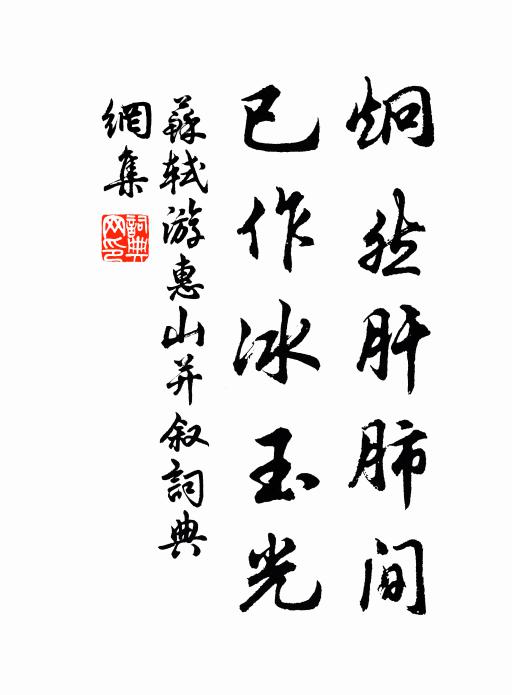 炯然肝肺间
已作冰玉光
蘇軾游惠山并叙詞典
網集
詞典
网印